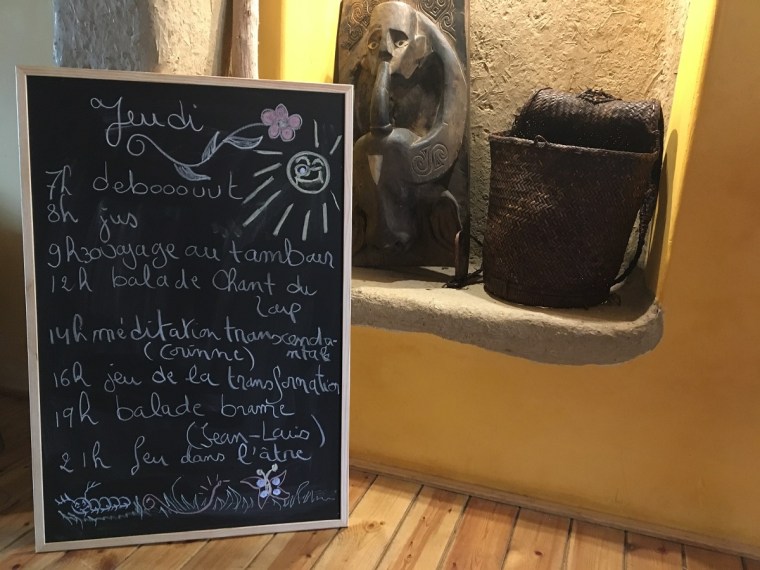 Jeudi
7h debooouut
8h jus
9h30 voyage au tambour
12h balade Chant du
Loup
14h méditation transcenda-
(Corinne) ntale
16h jeu de la transformation
19h balade brame
(Jean-Louis)
21h feu dans l'âtre